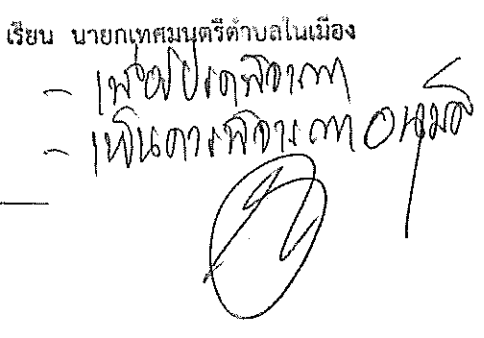 เรียน นายกเทศมนตรีตำบลในเมือง
- เพื่อโปรดพิจารณา
- เห็นควรพิจารณาอนุมัติ